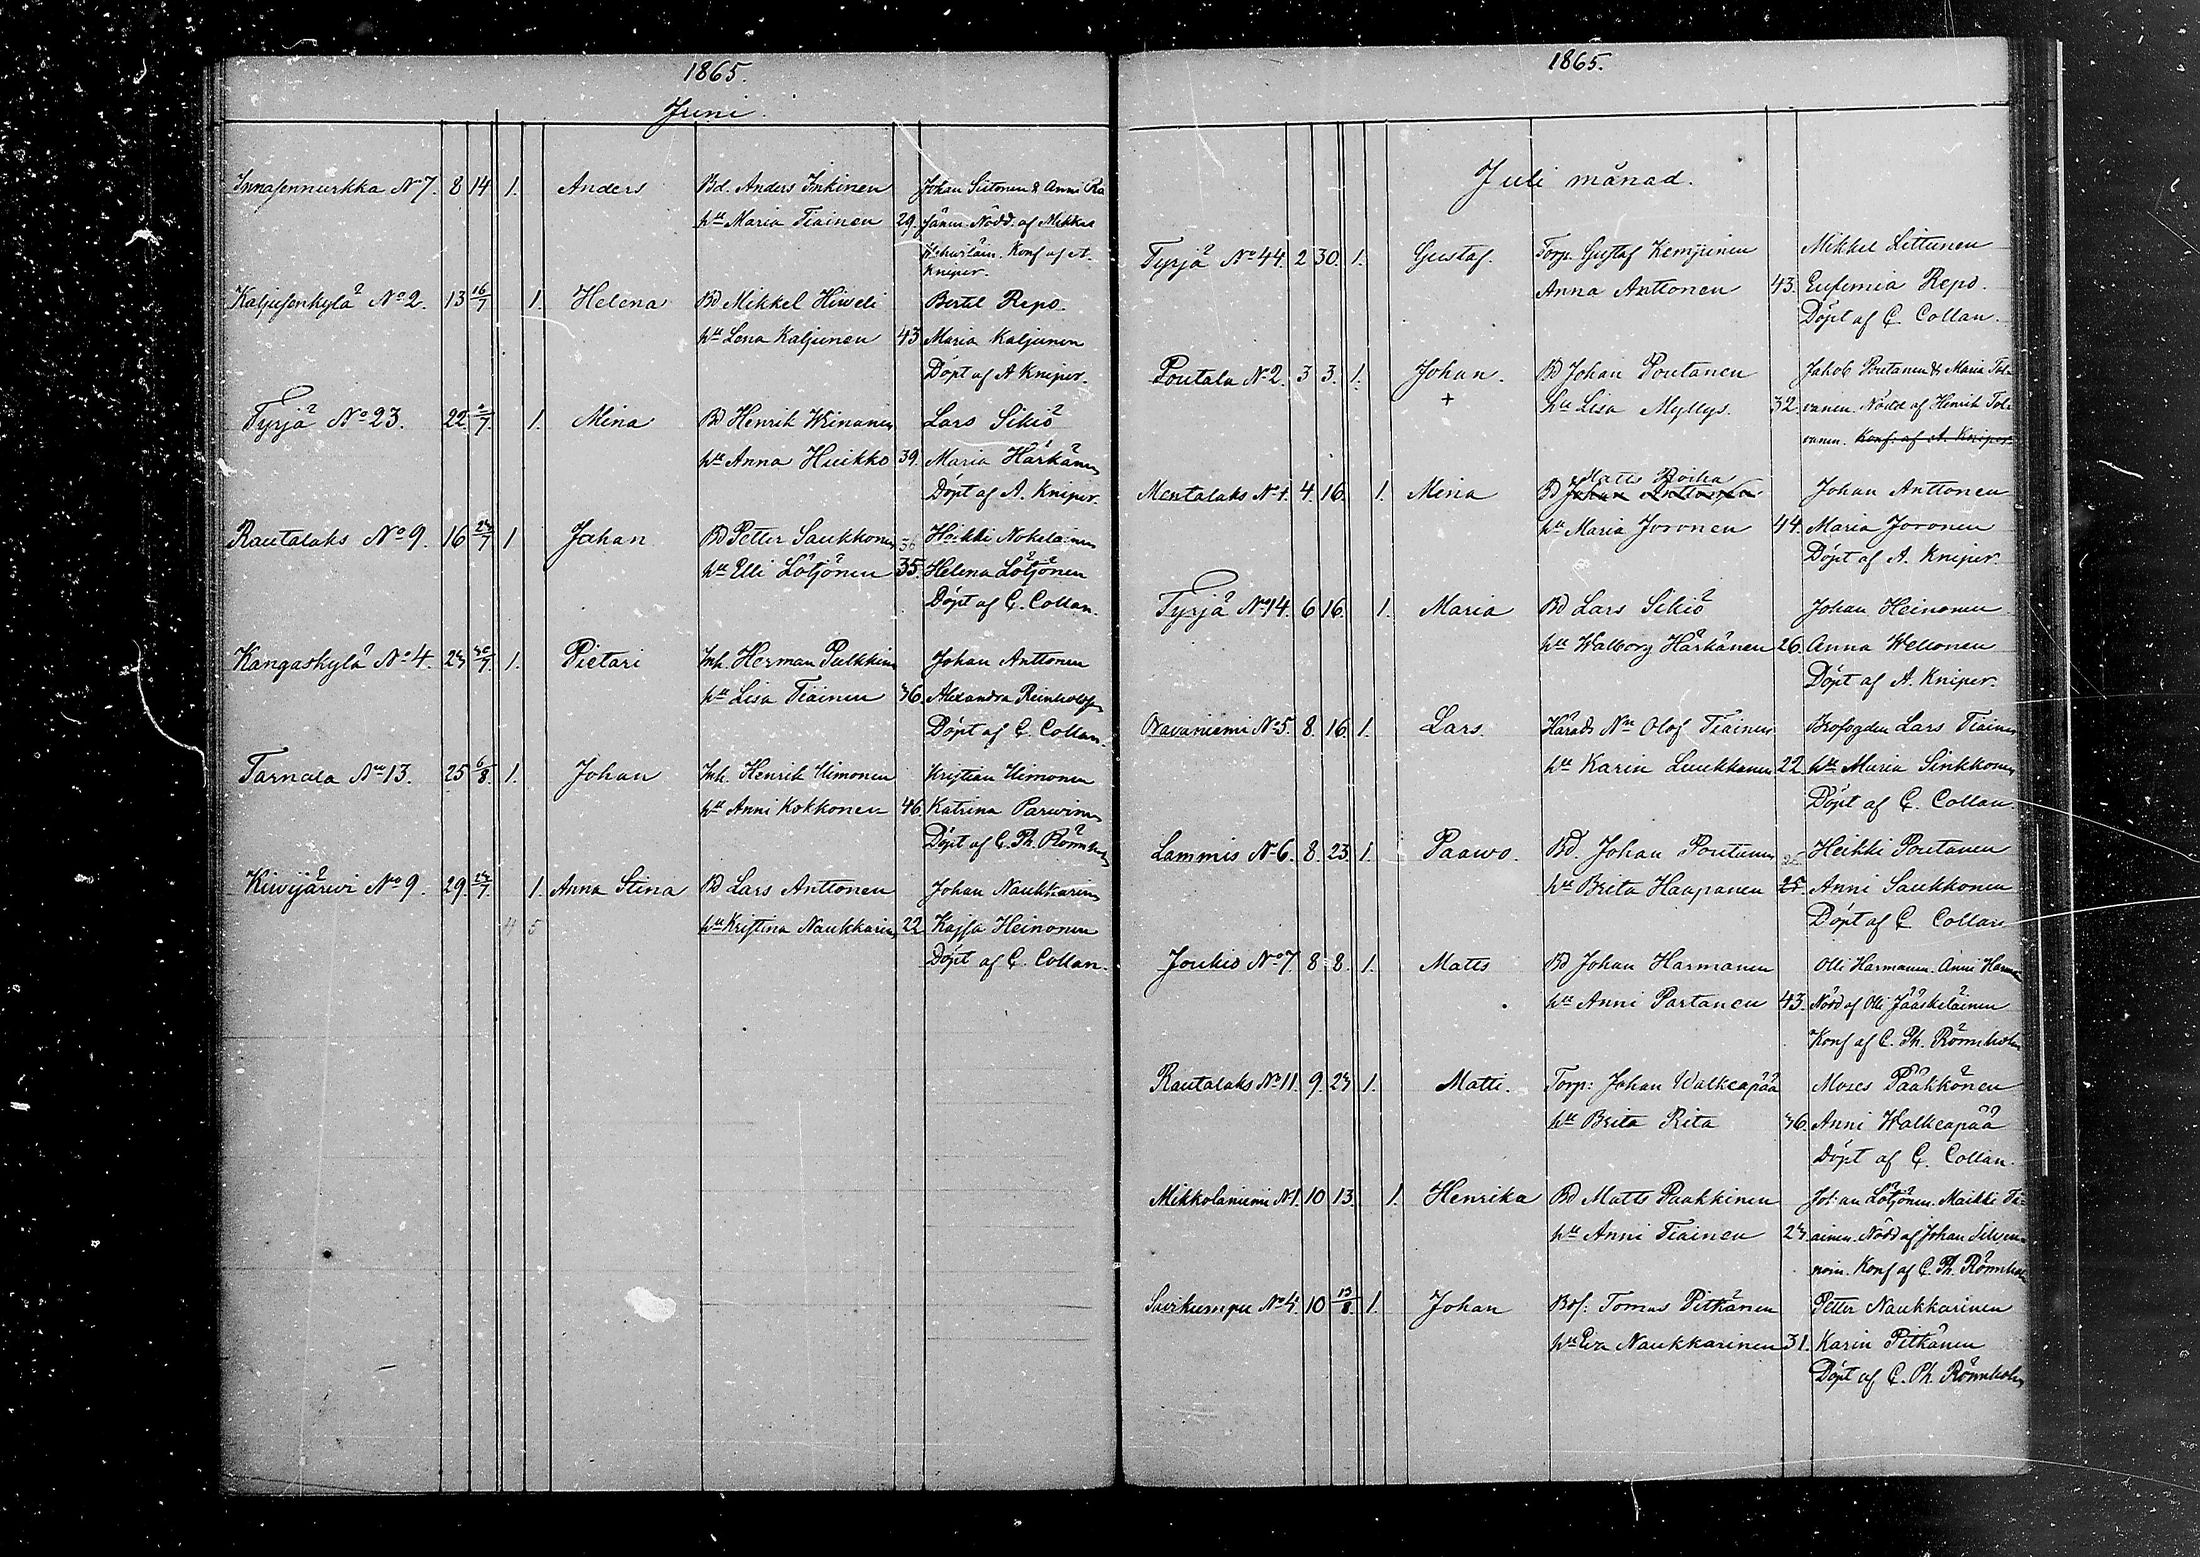 1865.
Juni
Innasennurkka No 7. 8 14 1. Anders Bd. Anders Inkinen Johan Siitonen & Anni Ra
hu Maria Tiainen 29. sänen Nödd. af Mikkel
Konf af A.
Kniper.
Kaljusenkylä No 2. 13 16/7 1. Helena Bd Mikkel Hiweli Bertil Repo
hu Lena Kaljunen 43 Maria Kaljunen
Döpt af A Kniper.
Tyrjä No 23. 22 /7 1. Mina Bd Henrik Weinanen Lars Sikiö
hu Anna Huikko 39. Maria Härkänen
Döpt af A. Kniper.
Rautalaks No 9. 16 23/7 1 Johan Bd Petter Saukkonen 36 Heikki Nokelainen
hu Elli Lötjönen 35. Helena Lötjönen
Döpt af C. Collan.
Kangaskylä No 4. 23 30/7 1. Pietari Inh. Herman Pulkkinen Johan Anttonen
hu Lisa Tiainen 36 Alexandra
Döpt af C. Collan.
Tarnala No 13. 25 6/8 1. Johan Inh. Henrik Uimonen Kristian Uimonen
hu Anni Kokkonen 46. Katrina Parwinen
Döpt af C. Ph. Rönnholm
Kiwijärwi No 9. 29. 23/7 1. Anna Stina Bd Lars Anttonen Johan Naukkarinen
4 5 hu Kristina Naukkarinen 22 Kajsa Heinonen
Döpt af C. Collan.
1865.
Juli månad.
Tyrjä No 44. 2 30. 1. Gustaf. Torp. Gustaf Kemppinen Mikkel Littunen
Anna Anttonen 43. Eufemia Repo.
Döpt af C. Collan.
Poutala No 2. 3 3. 1. Johan. Bd Johan Poutanen Jakob Poutanen & Maria Tol-
+ hu Lisa Myllys. 32. vanen. Nödd af Henrik Tol-
vanen. Konf. af A. Kniper.
Matts Roiha
Mentalaks No 1. 4. 16. 1. Mina Bd Johan Anttonen Johan Anttonen
hu Maria Joronen 44. Maria Joronen
Döpt af A. Kniper.
Tyrjä No 14. 6 16. 1. Maria Bd Lars Sikiö Johan Heinonen
hu Walborg Härkänen 26. Anna Weltonen
Döpt af A. Kniper.
Oravaniemi No 5. 8. 16 1. Lars. Härads Nn Olof Tiainen Brofogden Lars Tiainen
hu Karin Luukkanen 22 hu Maria Sinkkonen
Döpt af C. Collan.
Lammis No 6. 8. 23. 1. Paawo. Bd. Johan Poutanen Heikki Poutanen
hu Brita Haapanen 25. Anni Saukkonen
Döpt af C Collan
Joukio No 7. 8 8. 1. Matts Bd Johan Harmanen Olli Harmanen. Anni Harmanen
hu Anni Partanen 43. Nödd af Olli Jääskeläinen
Konf af C. Ph. Rönnholm
Rautalaks No 11. 9. 23 1. Matti. Torp: Johan Walkeapää Moses Pääkkönen
hu Brita Rita 36. Anni Walkeapää
Döpt af C. Collan.
Mikkolaniemi No 1. 10 13. 1. Henrika Bd Matts Paakkinen Johan Lötjönen. Maikki Ti-
hu Anni Tiainen 23. ainen. Nödd af Johan
Konf af C. Ph. Rönnholm
Suirkumpu No 4. 10 13/8 1. Johan Bof: Tomas Pitkänen Petter Naukkarinen
hu Eva Naukkarinen 31. Karin Pitkänen
Döpt af C. Ph. Rönnholm